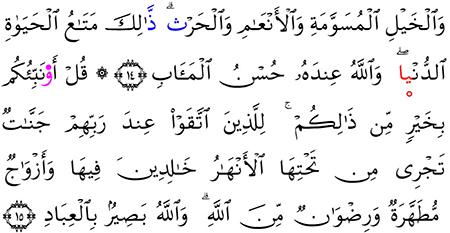 وَٱلْخَيْلِ ٱلْمُسَوَّمَةِ وَٱلْأَنْعَٰمِ وَٱلْحَرْثِ ۗ ذَّٰلِكَ مَتَٰعُ ٱلْحَيَوٰةِ
ٱلدُّنْيَا ۖ وَٱللَّهُ عِندَهُۥ حُسْنُ ٱلْمَـَٔابِ ﴿١٤﴾ ۞ قُلْ أَوُ۬نَبِّئُكُم
بِخَيْرٍ مِّن ذَٰلِكُمْ ۚ لِلَّذِينَ ٱتَّقَوْا۟ عِندَ رَبِّهِمْ جَنَّٰتٌ
تَجْرِى مِن تَحْتِهَا ٱلْأَنْهَٰرُ خَٰلِدِينَ فِيهَا وَأَزْوَٰجٌ
مُّطَهَّرَةٌ وَرِضْوَٰنٌ مِّنَ ٱللَّهِ ۗ وَٱللَّهُ بَصِيرٌۢ بِٱلْعِبَادِ ﴿١٥﴾